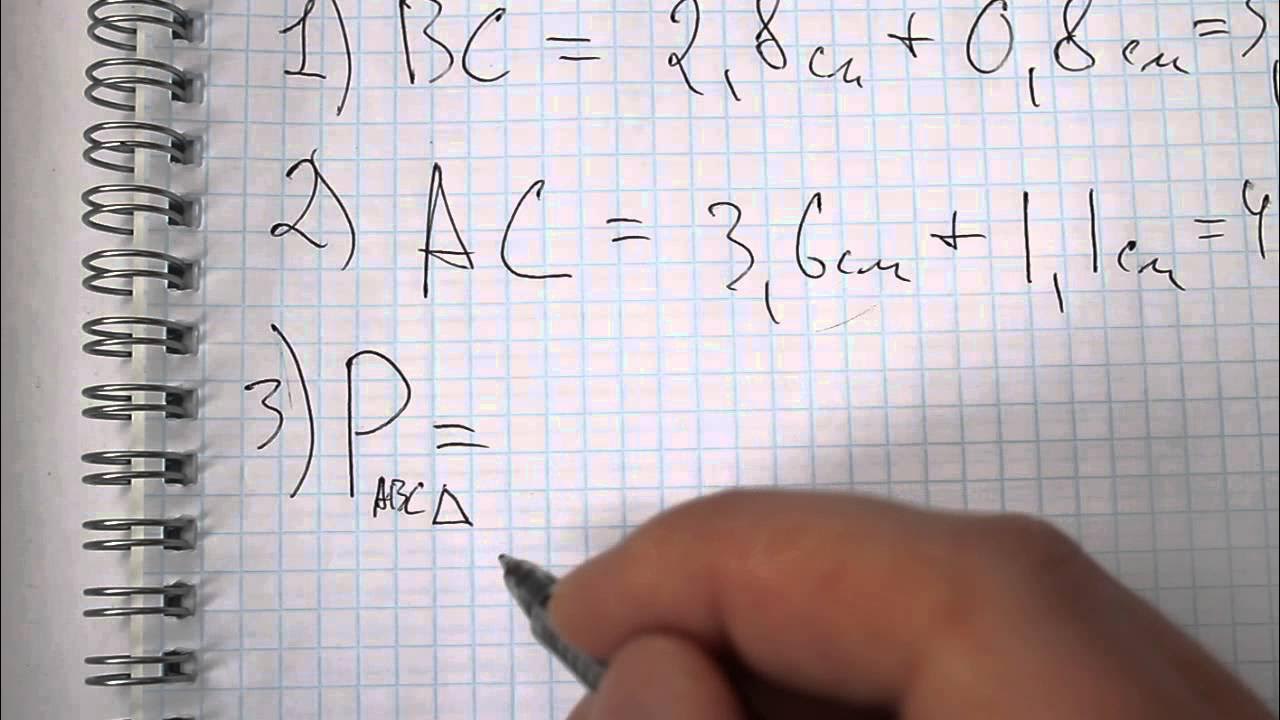 1) BC = 2,8см + 0,8см = 3,
2) AC = 3,6см + 1,1см = 4
3) P ABC△ =